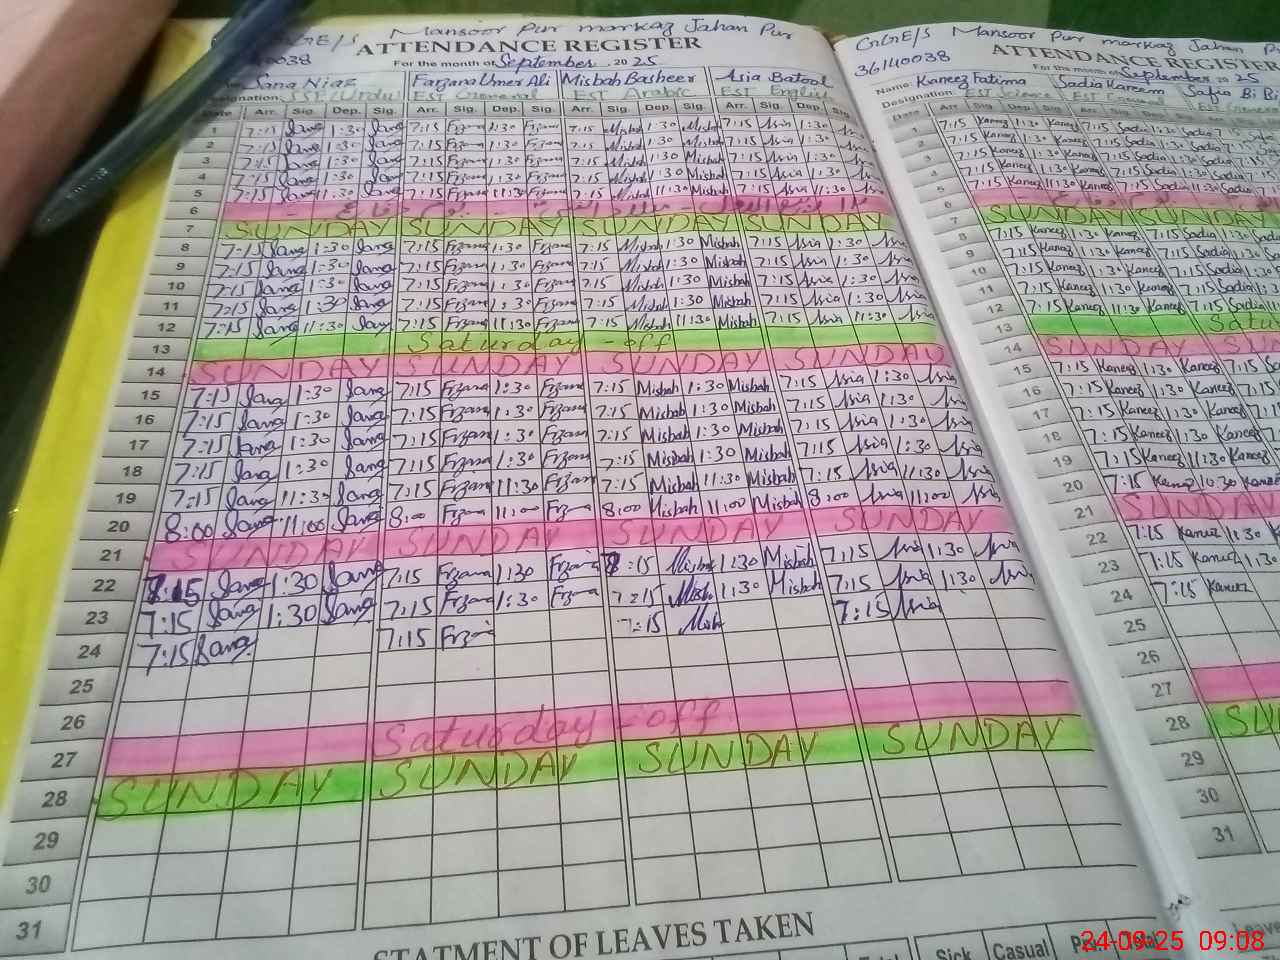 GGE/S Mansoor Pur markaz Jahan Pur
ATTENDANCE REGISTER
For the month of September 2025
Sana Niaz Farzana Umer Ali Misbah Basheer Asia Batool
SST Urdu EST General EST Arabic EST English
Date Arr. Sig. Dep. Sig. Arr. Sig. Dep. Sig. Arr. Sig. Dep. Sig. Arr. Sig. Dep. Sig.
1 7:15 Sana 1:30 Sana 7:15 Frzana 1:30 Frzana 7:15 Misbah 1:30 Misbah 7:15 Asia 1:30 Asia
2 7:15 Sana 1:30 Sana 7:15 Frzana 1:30 Frzana 7:15 Misbah 1:30 Misbah 7:15 Asia 1:30 Asia
3 7:15 Sana 1:30 Sana 7:15 Frzana 1:30 Frzana 7:15 Misbah 1:30 Misbah 7:15 Asia 1:30 Asia
4 7:15 Sana 1:30 Sana 7:15 Frzana 1:30 Frzana 7:15 Misbah 1:30 Misbah 7:15 Asia 1:30 Asia
5 7:15 Sana 11:30 Sana 7:15 Frzana 11:30 Frzana 7:15 Misbah 11:30 Misbah 7:15 Asia 11:30 Asia
6
7 SUNDAY SUNDAY SUNDAY SUNDAY
8 7:15 Sana 1:30 Sana 7:15 Frzana 1:30 Frzana 7:15 Misbah 1:30 Misbah 7:15 Asia 1:30 Asia
9 7:15 Sana 1:30 Sana 7:15 Frzana 1:30 Frzana 7:15 Misbah 1:30 Misbah 7:15 Asia 1:30 Asia
10 7:15 Sana 1:30 Sana 7:15 Frzana 1:30 Frzana 7:15 Misbah 1:30 Misbah 7:15 Asia 1:30 Asia
11 7:15 Sana 1:30 Sana 7:15 Frzana 1:30 Frzana 7:15 Misbah 1:30 Misbah 7:15 Asia 1:30 Asia
12 7:15 Sana 11:30 Sana 7:15 Frzana 11:30 Frzana 7:15 Misbah 11:30 Misbah 7:15 Asia 11:30 Asia
13 Saturday - off
14 SUNDAY SUNDAY SUNDAY SUNDAY
15 7:15 Sana 1:30 Sana 7:15 Frzana 1:30 Frzana 7:15 Misbah 1:30 Misbah 7:15 Asia 1:30 Asia
16 7:15 Sana 1:30 Sana 7:15 Frzana 1:30 Frzana 7:15 Misbah 1:30 Misbah 7:15 Asia 1:30 Asia
17 7:15 Sana 1:30 Sana 7:15 Frzana 1:30 Frzana 7:15 Misbah 1:30 Misbah 7:15 Asia 1:30 Asia
18 7:15 Sana 1:30 Sana 7:15 Frzana 1:30 Frzana 7:15 Misbah 1:30 Misbah 7:15 Asia 1:30 Asia
19 7:15 Sana 11:30 Sana 7:15 Frzana 11:30 Frzana 7:15 Misbah 11:30 Misbah 7:15 Asia 11:30 Asia
20 8:00 Sana 11:00 Sana 8:00 Frzana 11:00 Frzana 8:00 Misbah 11:00 Misbah 8:00 Asia 11:00 Asia
21 SUNDAY SUNDAY SUNDAY SUNDAY
22 7:15 Sana 1:30 Sana 7:15 Frzana 1:30 Frzana 7:15 Misbah 1:30 Misbah 7:15 Asia 1:30 Asia
23 7:15 Sana 1:30 Sana 7:15 Frzana 1:30 Frzana 7:15 Misbah 1:30 Misbah 7:15 Asia 1:30 Asia
24 7:15 Sana 7:15 Frzana 7:15 Misbah 7:15 Asia
25
26
27 Saturday - off
28 SUNDAY SUNDAY SUNDAY SUNDAY
29
30
31
STATMENT OF LEAVES TAKEN
Sick Casual
GGE/S Mansoor Pur markaz Jahan P
36140038
ATTENDANCE REGISTER
For the month of September 2025
Name: Kaneez Fatima Sadia Kareem Safia Bi Bi
Designation: EST Science EST General
Date Arr. Sig. Dep. Sig. Arr. Sig. Dep. Sig. Arr.
1 7:15 Kaneez 1:30 Kaneez 7:15 Sadia 1:30 Sadia 7:15
2 7:15 Kaneez 1:30 Kaneez 7:15 Sadia 1:30 Sadia 7:15
3 7:15 Kaneez 1:30 Kaneez 7:15 Sadia 1:30 Sadia
4 7:15 Kaneez 1:30 Kaneez 7:15 Sadia 1:30 Sadia
5 7:15 Kaneez 11:30 Kaneez 7:15 Sadia 11:30 Sadia
6
7 SUNDAY SUNDAY
8 7:15 Kaneez 1:30 Kaneez 7:15 Sadia
9 7:15 Kaneez 1:30 Kaneez 7:15 Sadia
10 7:15 Kaneez 1:30 Kaneez 7:15 Sadia
11 7:15 Kaneez 1:30 Kaneez 7:15 Sadia
12 7:15 Kaneez 11:30 Kaneez 7:15 Sadia
13 Satu
14 SUNDAY SU
15 7:15 Kaneez 1:30 Kaneez 7:15
16 7:15 Kaneez 1:30 Kaneez 7:15
17 7:15 Kaneez 1:30 Kaneez
18 7:15 Kaneez 1:30 Kaneez
19 7:15 Kaneez 11:30 Kaneez
20 7:15 Kaneez 10:30 Kaneez
21 SUNDAY
22 7:15 Kaneez 1:30
23 7:15 Kaneez 1:30
24 7:15 Kaneez
25
26
27
28 SU
29
30
31
24-09-25 09:08